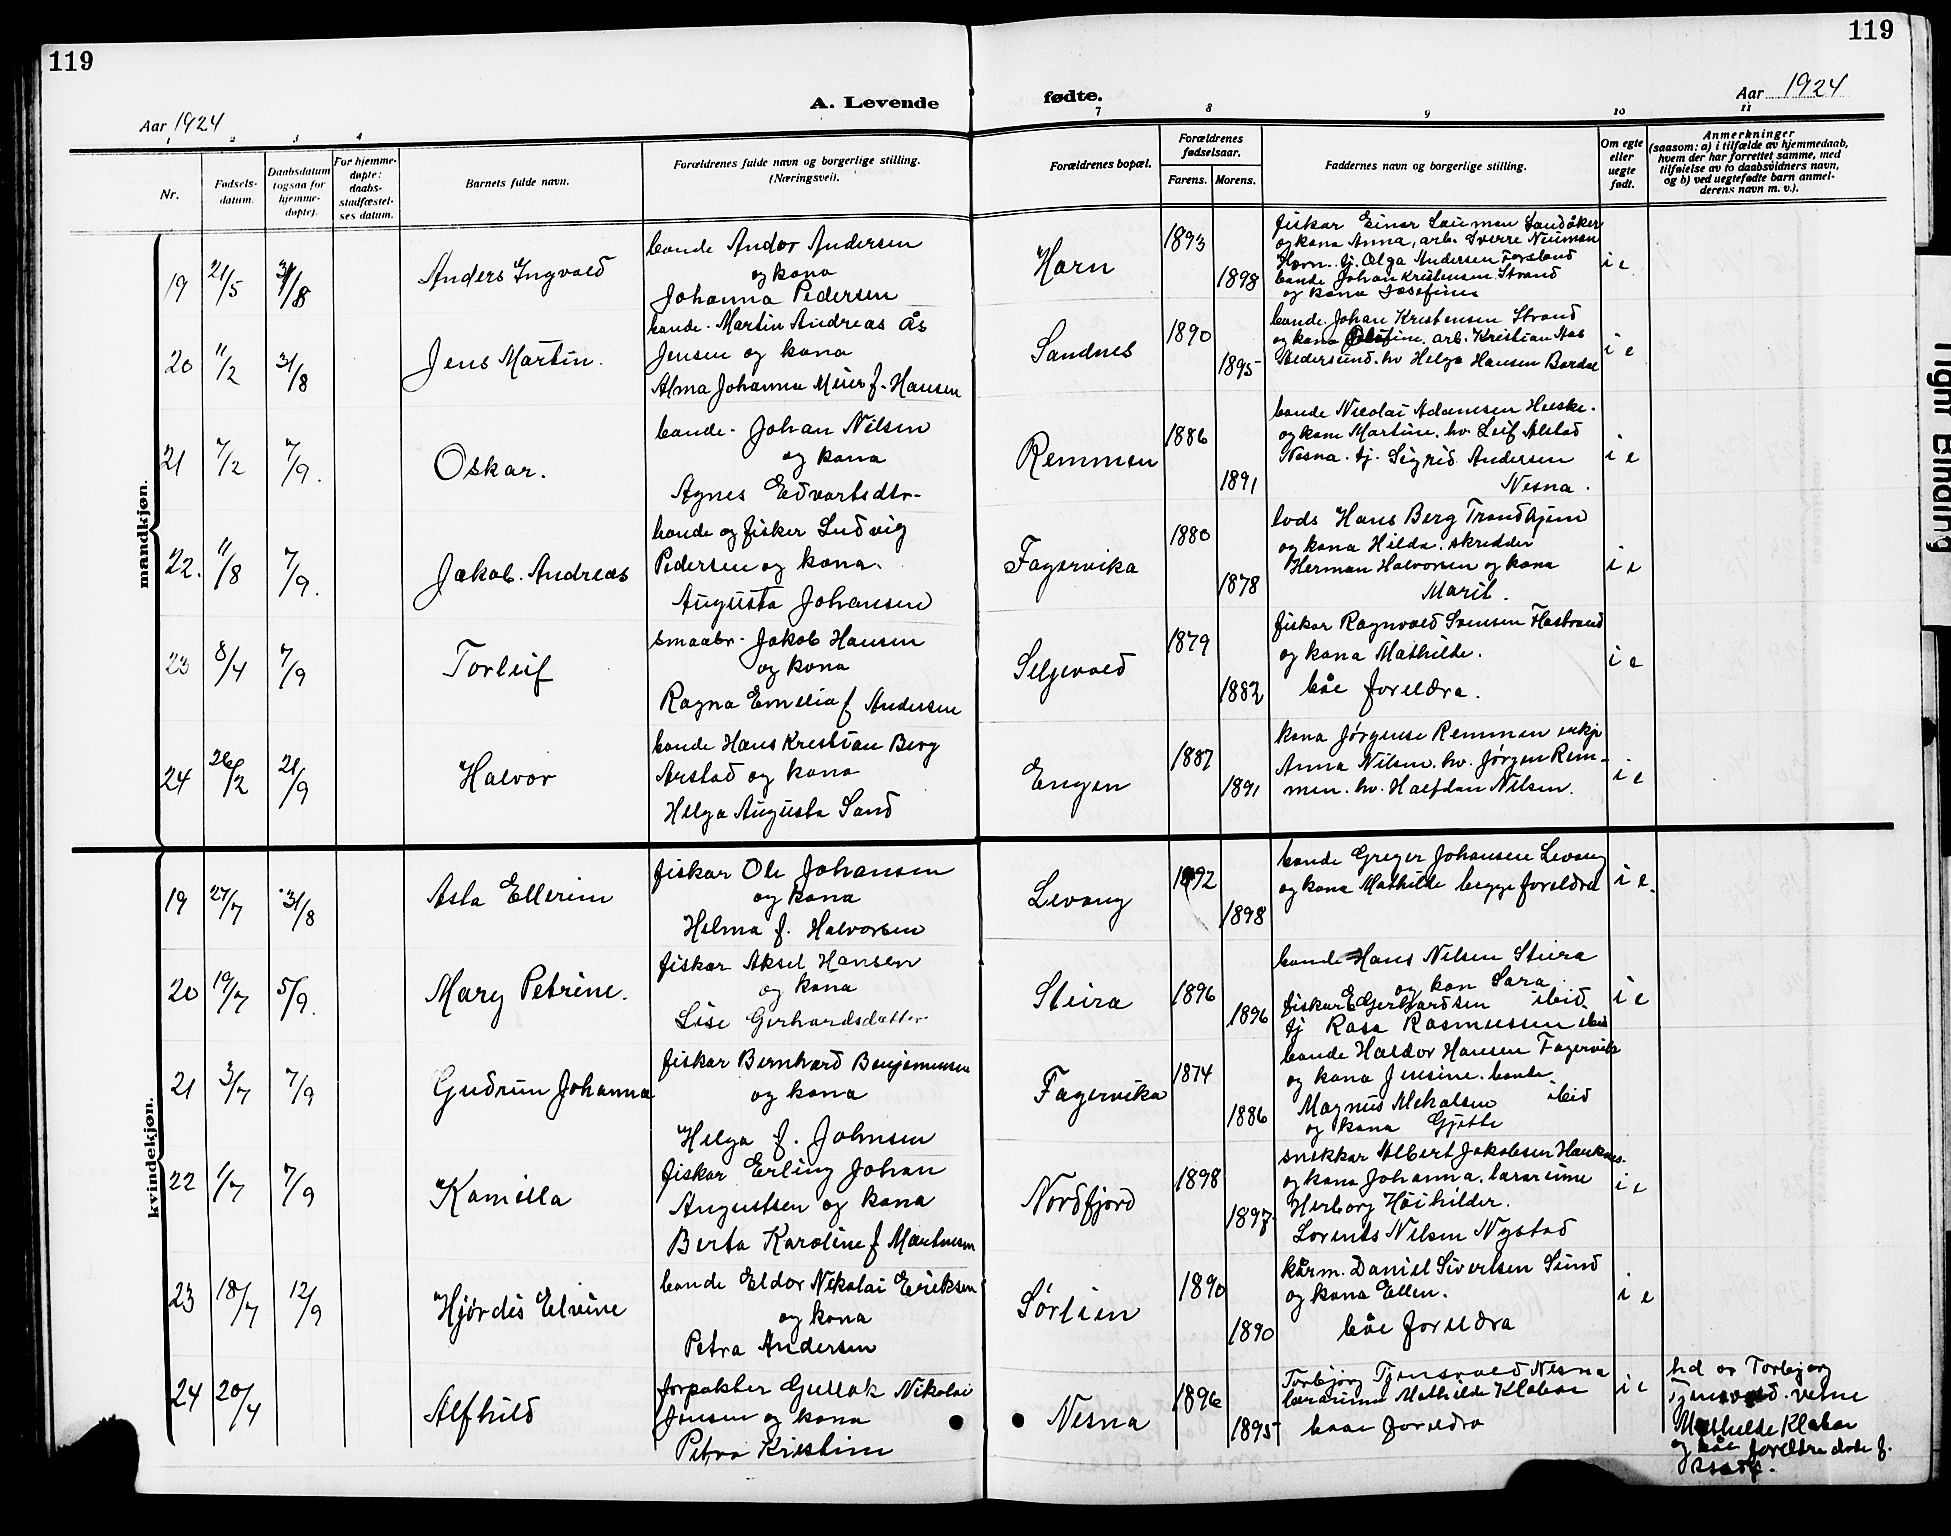 119
119
A. Levende
fødte.
Aar 1924
Aar 1924
1
2
3
4
7
8
9
10
11
Nr.
Fødsels-
datum.
Daabsdatum
(ogsaa for
hjemme-
døpte).
For hjemme-
døpte:
daabs-
stadfæstel-
ses datum.
Barnets fulde navn.
Forældrenes fulde navn og borgerlige stilling.
(Næringsvei).
Forældrenes bopæl.
Forældrenes
fødselsaar.
Farens.
Morens.
Faddernes navn og borgerlige stilling.
Om egte
eller
uegte
født.
Anmerkninger
(saasom: a) i tilfælde av hjemmedaab,
hvem der har forrettet samme, med
tilføielse av to daabsvidners navn,
og b) ved uegtefødte barn anmel-
derens navn m. v.).
mandkjøn.
19
21/5
31/8
Anders Ingvald
bonde Andor Andersen
og kona
Johanna Pedersen
Horn
1893
1898
fiskar Einar Sandåker
og kona Anna, arb. Sverre Neuman
Horn. tj. Olga Andersen Forsland
bonde Johan Kristensen Strand
og kona Josefine
i e
20
11/2
31/8
Jens Martin.
bonde. Martin Andreas Ås
Jensen og kona
Alma Johanna Meier f. Hansen
Sandnes
1890
1895
bonde. Johan Kristensen Strand
og kona Josefine. arb. Kristian Aas
hv Helga Hansen Bardal
i e
21
7/2
7/9.
Oskar.
bonde. Johan Nilsen
og kona
Agnes Edvartsdtr.
Remmen
1886
1891
bonde Nicolai Adamsen
og kona Martine. hv. Leif Alstad
Nesna. tj. Sigrid Andersen
Nesna.
i e
22.
11/8
7/9.
Jakob. Andreas
bonde og fisker Ludvig
Pedersen og kona.
Augusta Johansen
Fagervika
1880
1878
lods Hans Berg Trondhjem
og kona Hilda. skredder
Herman Halvorsen og kona
Marit.
i e
23
8/4
7/9
Torleif
smaabr. Jakob Hansen
og kona
Ragna Emelia f Andersen
Seljevold
1879
1882
fiskar Ragnvald Svensen
og kona Mathilde.
båe foreldra.
i e
24
26/2
21/9
Halvor
bonde Hans Kristian Berg
Arstad og kona
Helga Augusta Sand
Engen
1887
1891
kona Jørgense Remmen
Anna Nilsen. hv. Jørgen Rem-
men. hv. Halfdan Nilsen.
i e
kvindekjøn.
19
27/7
31/8
Asta Ellerine
fiskar Ole Johansen
og kona
Helma f. Halvorsen
Levang
1892
1898
bonde Greger Johansen Levang
og kona Mathilde begge foreldra
i e.
20
19/7
5/9.
Mary Petrine.
fiskar Aksel Hansen
og kona
Lise Gerhardsdatter
Steira
1896
1896
bonde Hans Nilsen Steira
og kon Sara
fiskar E Gerhardsen ibid.
tj Rasa Rasmussen ibid
i e
21
3/7
7/9
Gudrun Johanna
fiskar Bernhard Benjaminsen
og kona
Helga f. Johnsen
Fagervika
1874
1886
bonde Haldor Hansen Fagervik
og kona Jensine. bonde
Magnus Mikalsen ibid
og kona Gjette
22
1/7
7/9
Kamilla
fiskar Erling Johan
Augustsen og kona
Berta Karoline f Martinsen
Nordfjord
1898
1897
snekkar Albert Jakobsen
og kona Johanna. lærarinne
Herborg Høihilder.
Lorents Nilsen Nystad
i e
23
18/7
12/9
Hjørdis Elvine
bonde Eldor Nikolai Eriksen
og kona
Petra Andersen
Sørlien
1890
1890
kårm. Daniel Sivertsen Sund
og kona Ellen.
båe foreldra
i e
24
20/4
Alfhild
forpakter Gullak Nikolai
Jensen og kona
Petra Kristine
Nesna
1896
1895
Torbjørg Tjensvold Nesna
lærarinna Mathilde Klabær
baae foreldra
i e
Torbjørg
Tjensvold
Mathilde Klabær
og båe foreldre
Tight Binding